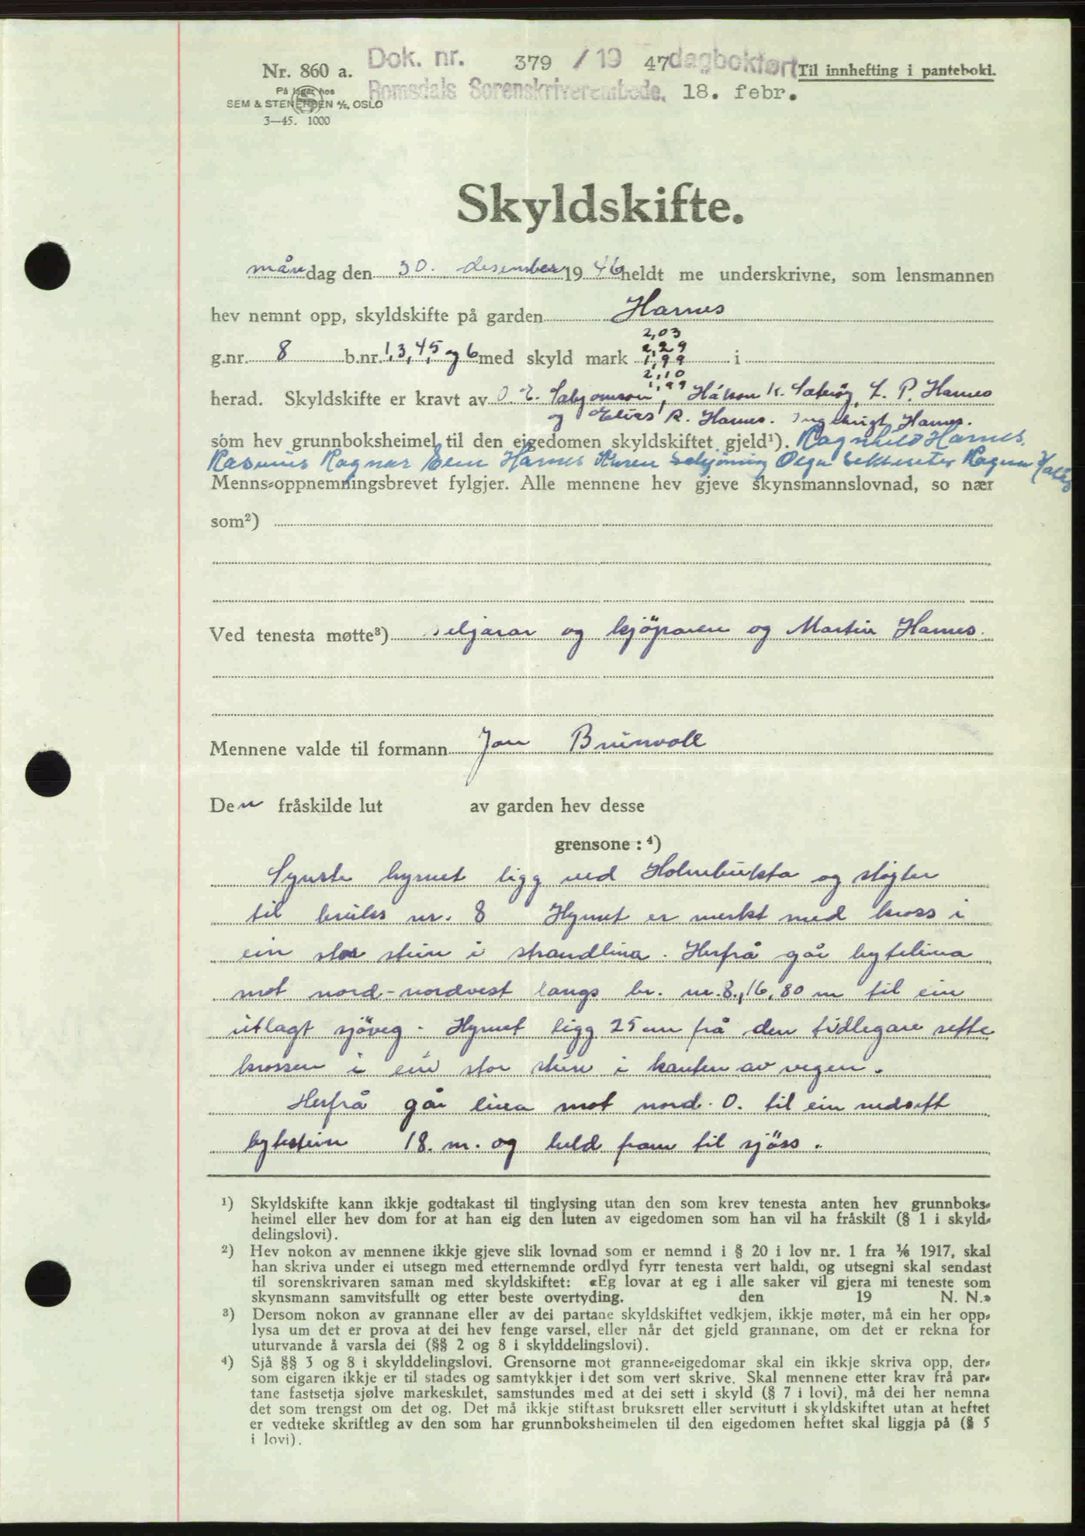 Nr. 860 a.
Dok. nr. 379 / 19 47 dagboktørt
Til innhefting i panteboki.
På lager hos
SEM & STENERSEN A/S, OSLO
3—45. 1000
Romsdals Sorenskriverembede. 18. febr.
Skyldskifte.
måndag den 30. desember 19 46 heldt me underskrivne, som lensmannen
hev nemnt opp, skyldskifte på garden Harnes
2,03
g.nr. 8 b.nr. 1, 3, 4, 5, og 6 med skyld mark 2,29 1,99 i
2,10
1,99
herad. Skyldskifte er kravt av O. E. Håkon K. L. P. Harnes
og Elias R. Harnes. Harnes.
som hev grunnboksheimel til den eigedomen skyldskiftet gjeld¹). Ragnhild Harnes.
Rasmus Ragnar Harnes Olga Ragna
Menns-oppnemningsbrevet fylgjer. Alle mennene hev gjeve skynsmannslovnad, so nær
som²)
Ved tenesta møtte³) seljarar og kjöparen og Martin Harnes.
Mennene valde til formann Jon Brunvoll
Den fråskilde lut av garden hev desse
grensone : ⁴)
hyrnet ligg ved Holmbukta og støyter
til bruks nr. 8 Hyrnet er merkt med kross i
ein stor stein i strandlina. Herfrå går bytelina
mot nord-nordvest langs br. nr. 8, 16,80 m til ein
utlagt sjöveg. Hyrnet ligg 25 cm frå den tidlegare sette
krossen i ein stor stein i kanten av vegen.
Herfrå går lina mot nord. O. til ein nedsett
bytestein 18. m. og beld fram til sjöss.
¹) Skyldskifte kann ikkje godtakast til tinglysing utan den som krev tenesta anten hev grunnboks-
heimel eller hev dom for at han eig den luten av eigedomen som han vil ha fråskilt (§ 1 i skyld-
delingslovi).
²) Hev nokon av mennene ikkje gjeve slik lovnad som er nemnd i § 20 i lov nr. 1 fra 1/6 1917, skal
han skriva under ei utsegn med etternemnde ordlyd fyrr tenesta vert haldi, og utsegni skal sendast
til sorenskrivaren saman med skyldskiftet: «Eg lovar at eg i alle saker vil gjera mi teneste som
skynsmann samvitsfullt og etter beste overtyding. den 19 N. N.»
³) Dersom nokon av grannane eller av dei partane skyldskiftet vedkjem, ikkje møter, må ein her opp-
lysa um det er prova at dei hev fenge varsel, eller når det gjeld grannane, om det er rekna for
uturvande å varsla dei (§§ 2 og 8 i skylddelingslovi).
⁴) Sjå §§ 3 og 8 i skylddelingslovi. Grensorne mot granne-eigedomar skal ein ikkje skriva opp, der-
som eigaren ikkje er til stades og samtykkjer i det som vert skrive. Skal mennene etter krav frå par-
tane fastsetja sjølve markeskilet, samstundes med at dei sett i skyld (§ 7 i lovi), må dei her nemna
det som trengst om det og. Det må ikkje stiftast bruksrett eller servitutt i skyldskiftet utan at heftet
er vedteke skriftleg av den som har grunnboksheimelen til den eigedomen heftet skal liggja på (§ 5
i lovi).